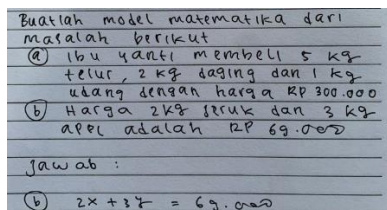 Buatlah model matematika dari
masalah berikut
(a) Ibu yanti membeli 5 kg
telur, 2 kg daging dan 1 kg
udang dengan harga RP 300.000
(b) Harga 2kg jeruk dan 3 kg
apel adalah RP 69.000
Jawab :
(b) 2x + 3y = 69.000